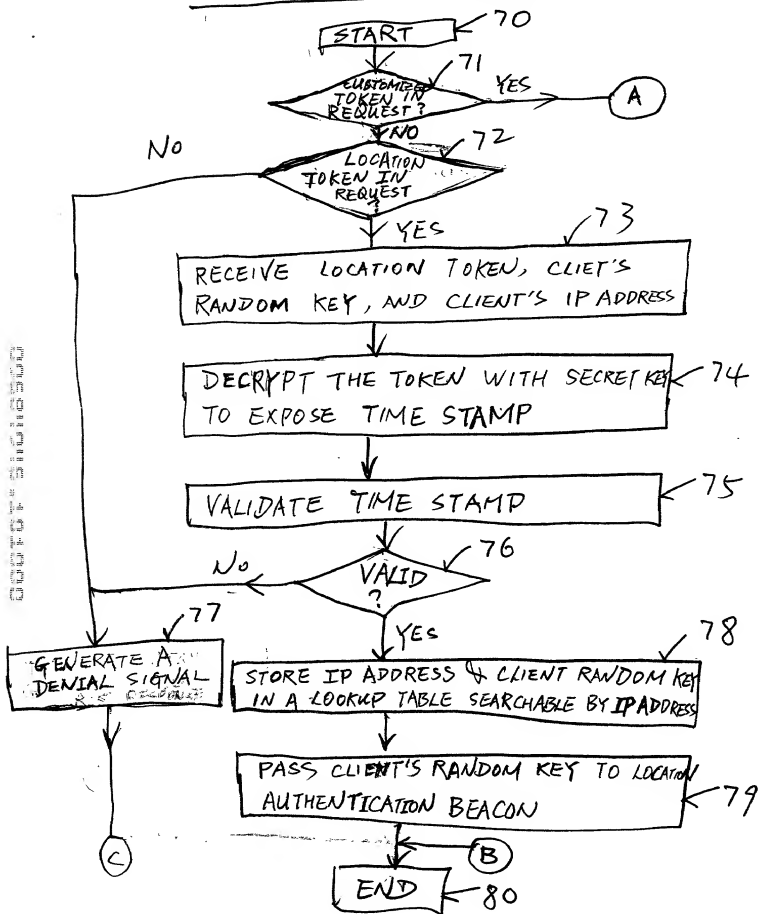 70
START
71
CUSTOMIZED
TOKEN IN
REQUEST?
YES
A
NO
72
No
LOCATION
TOKEN IN
REQUEST
?
YES
73
RECEIVE LOCATION TOKEN, CLIET'S
RANDOM KEY, AND CLIENT'S IP ADDRESS
DECRYPT THE TOKEN WITH SECRET KEY
TO EXPOSE TIME STAMP
74
VALIDATE TIME STAMP
75
No
VALID
?
76
YES
77
GENERATE A
DENIAL SIGNAL
78
STORE IP ADDRESS & CLIENT RANDOM KEY
IN A LOOKUP TABLE SEARCHABLE BY IP ADDRESS
PASS CLIENT'S RANDOM KEY TO LOCATION
AUTHENTICATION BEACON
79
C
B
END
80